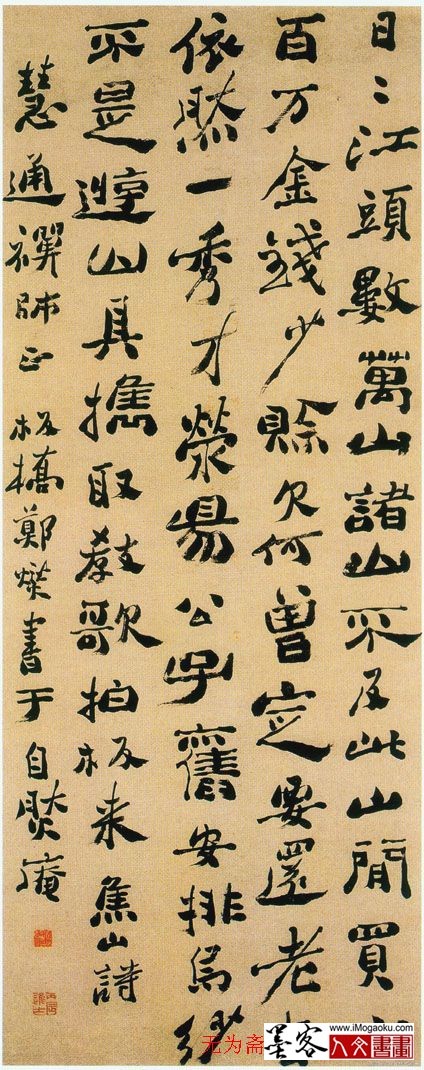 日〻江頭數萬山諸山不及此山閒買
百万金錢少賒欠何曾定要還老
依然一秀才滎陽公子舊安排烏紗
不是遊山具攜取教歌拍板来焦山詩
慧通禪師正板橋鄭燮書于自然庵
无为斋
墨客
www.iMogaoku.com
人文書畫